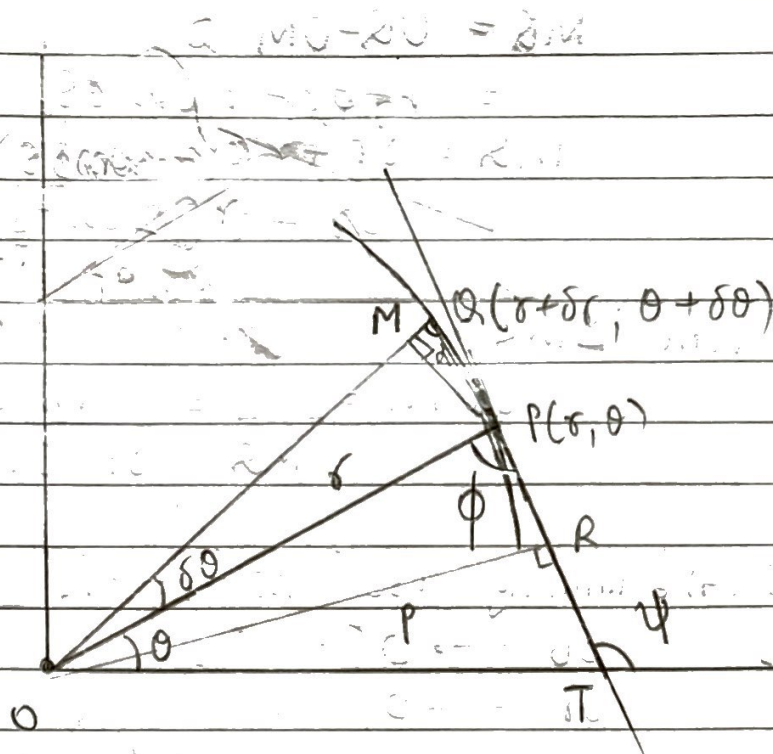 M
Q(r+δr, θ+δθ)
P(r, θ)
r
ϕ
R
δθ
θ
p
ψ
O
T